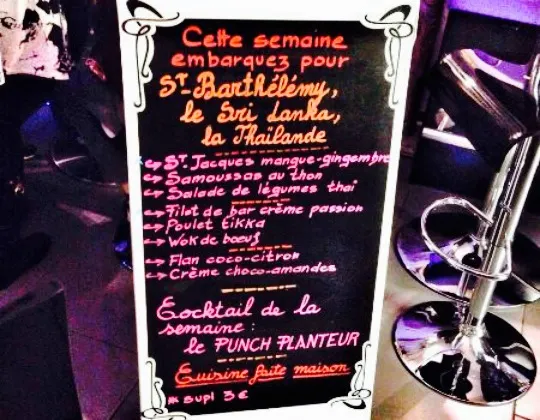 Cette semaine
embarquez pour
St-Barthélémy,
le Sri Lanka,
la Thaïlande
St Jacques mangue-gingembre
Samoussas au thon
Salade de légumes thaï
Filet de bar crème passion
Poulet tikka
Wok de bœuf
Flan coco-citron
Crème choco-amandes
Cocktail de la
semaine :
le PUNCH PLANTEUR
Cuisine faite maison
* supl 3€